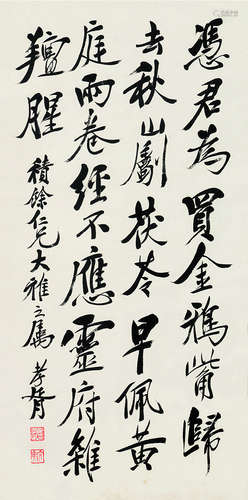 憑君為買金鴉觜歸
去秋山劚茯苓早佩黃
庭兩卷經不應靈府雜
羶腥 積餘仁兄大雅之屬 孝胥